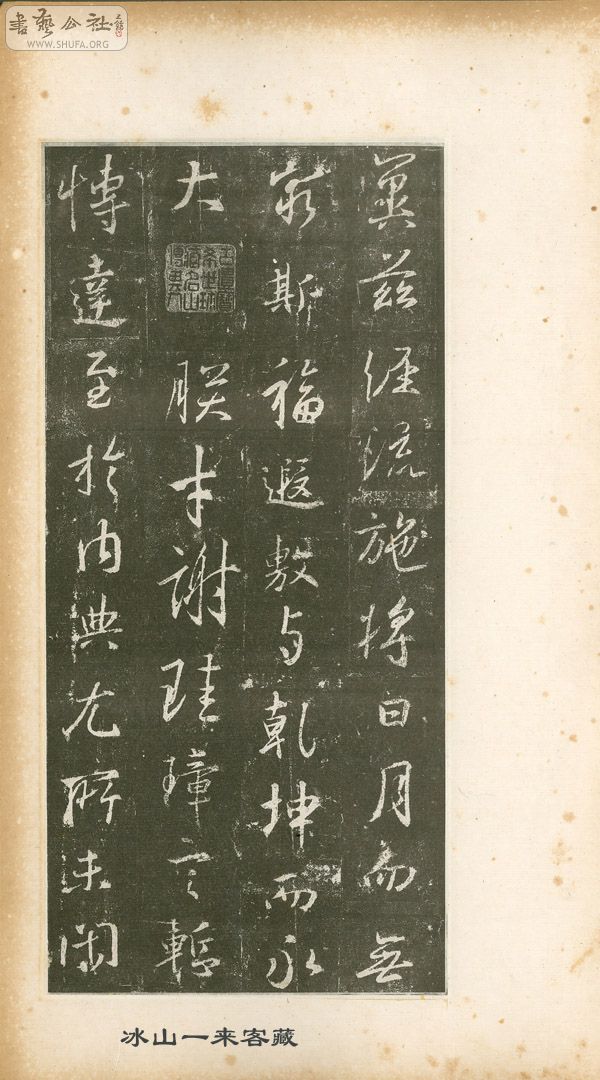 書藝公社
WWW.SHUFA.ORG
冀茲經流施將日月而無
窮斯福遐敷与乾坤而永
大朕才謝珪璋言慙
博達至於內典尤所未閑
冰山一来客藏